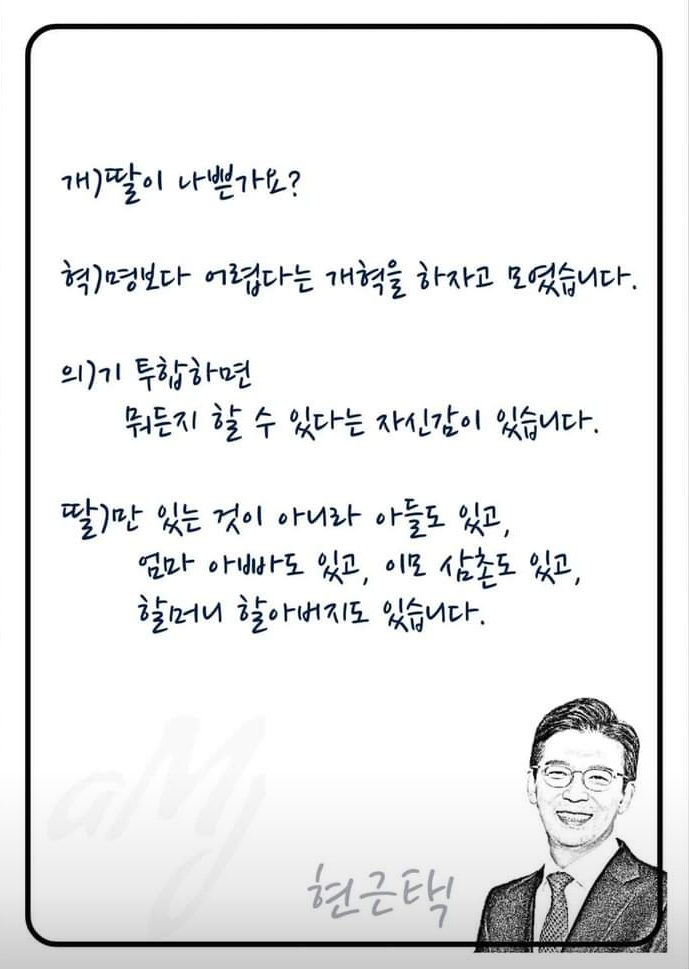 개)딸이 나쁜가요?
혁)명보다 어렵다는 개혁을 하자고 모였습니다.
의)기 투합하면
뭐든지 할 수 있다는 자신감이 있습니다.
딸)만 있는 것이 아니라 아들도 있고,
엄마 아빠도 있고, 이모 삼촌도 있고,
할머니 할아버지도 있습니다.
aMy
현근택